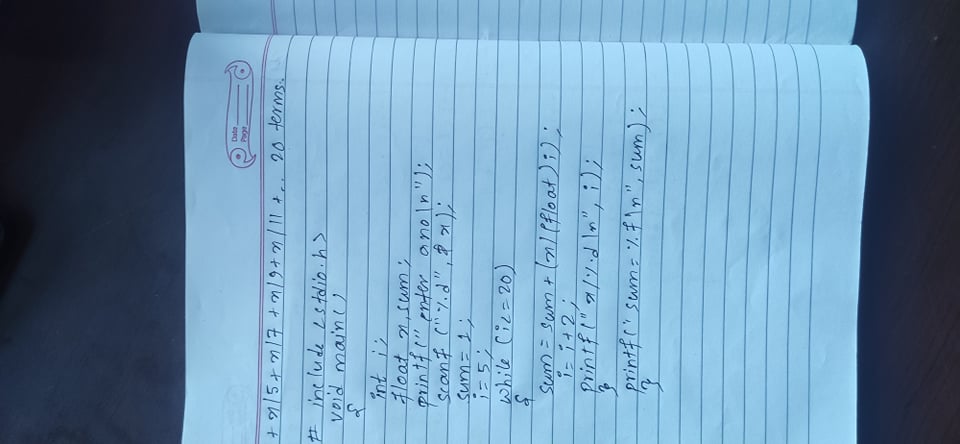 Date
Page
+ x/5 + x/7 + x/9 + x/11 + .. 20 terms.
# include <stdio.h>
void main()
{
int i;
float x, sum;
printf(" enter a no \n");
scanf ("%d", & x);
sum = 1;
i = 5;
while (i<=20)
{
sum = sum + (x/(float)i);
i = i+2;
printf(" x/%d \n", i);
}
printf(" sum = %f\n", sum);
}